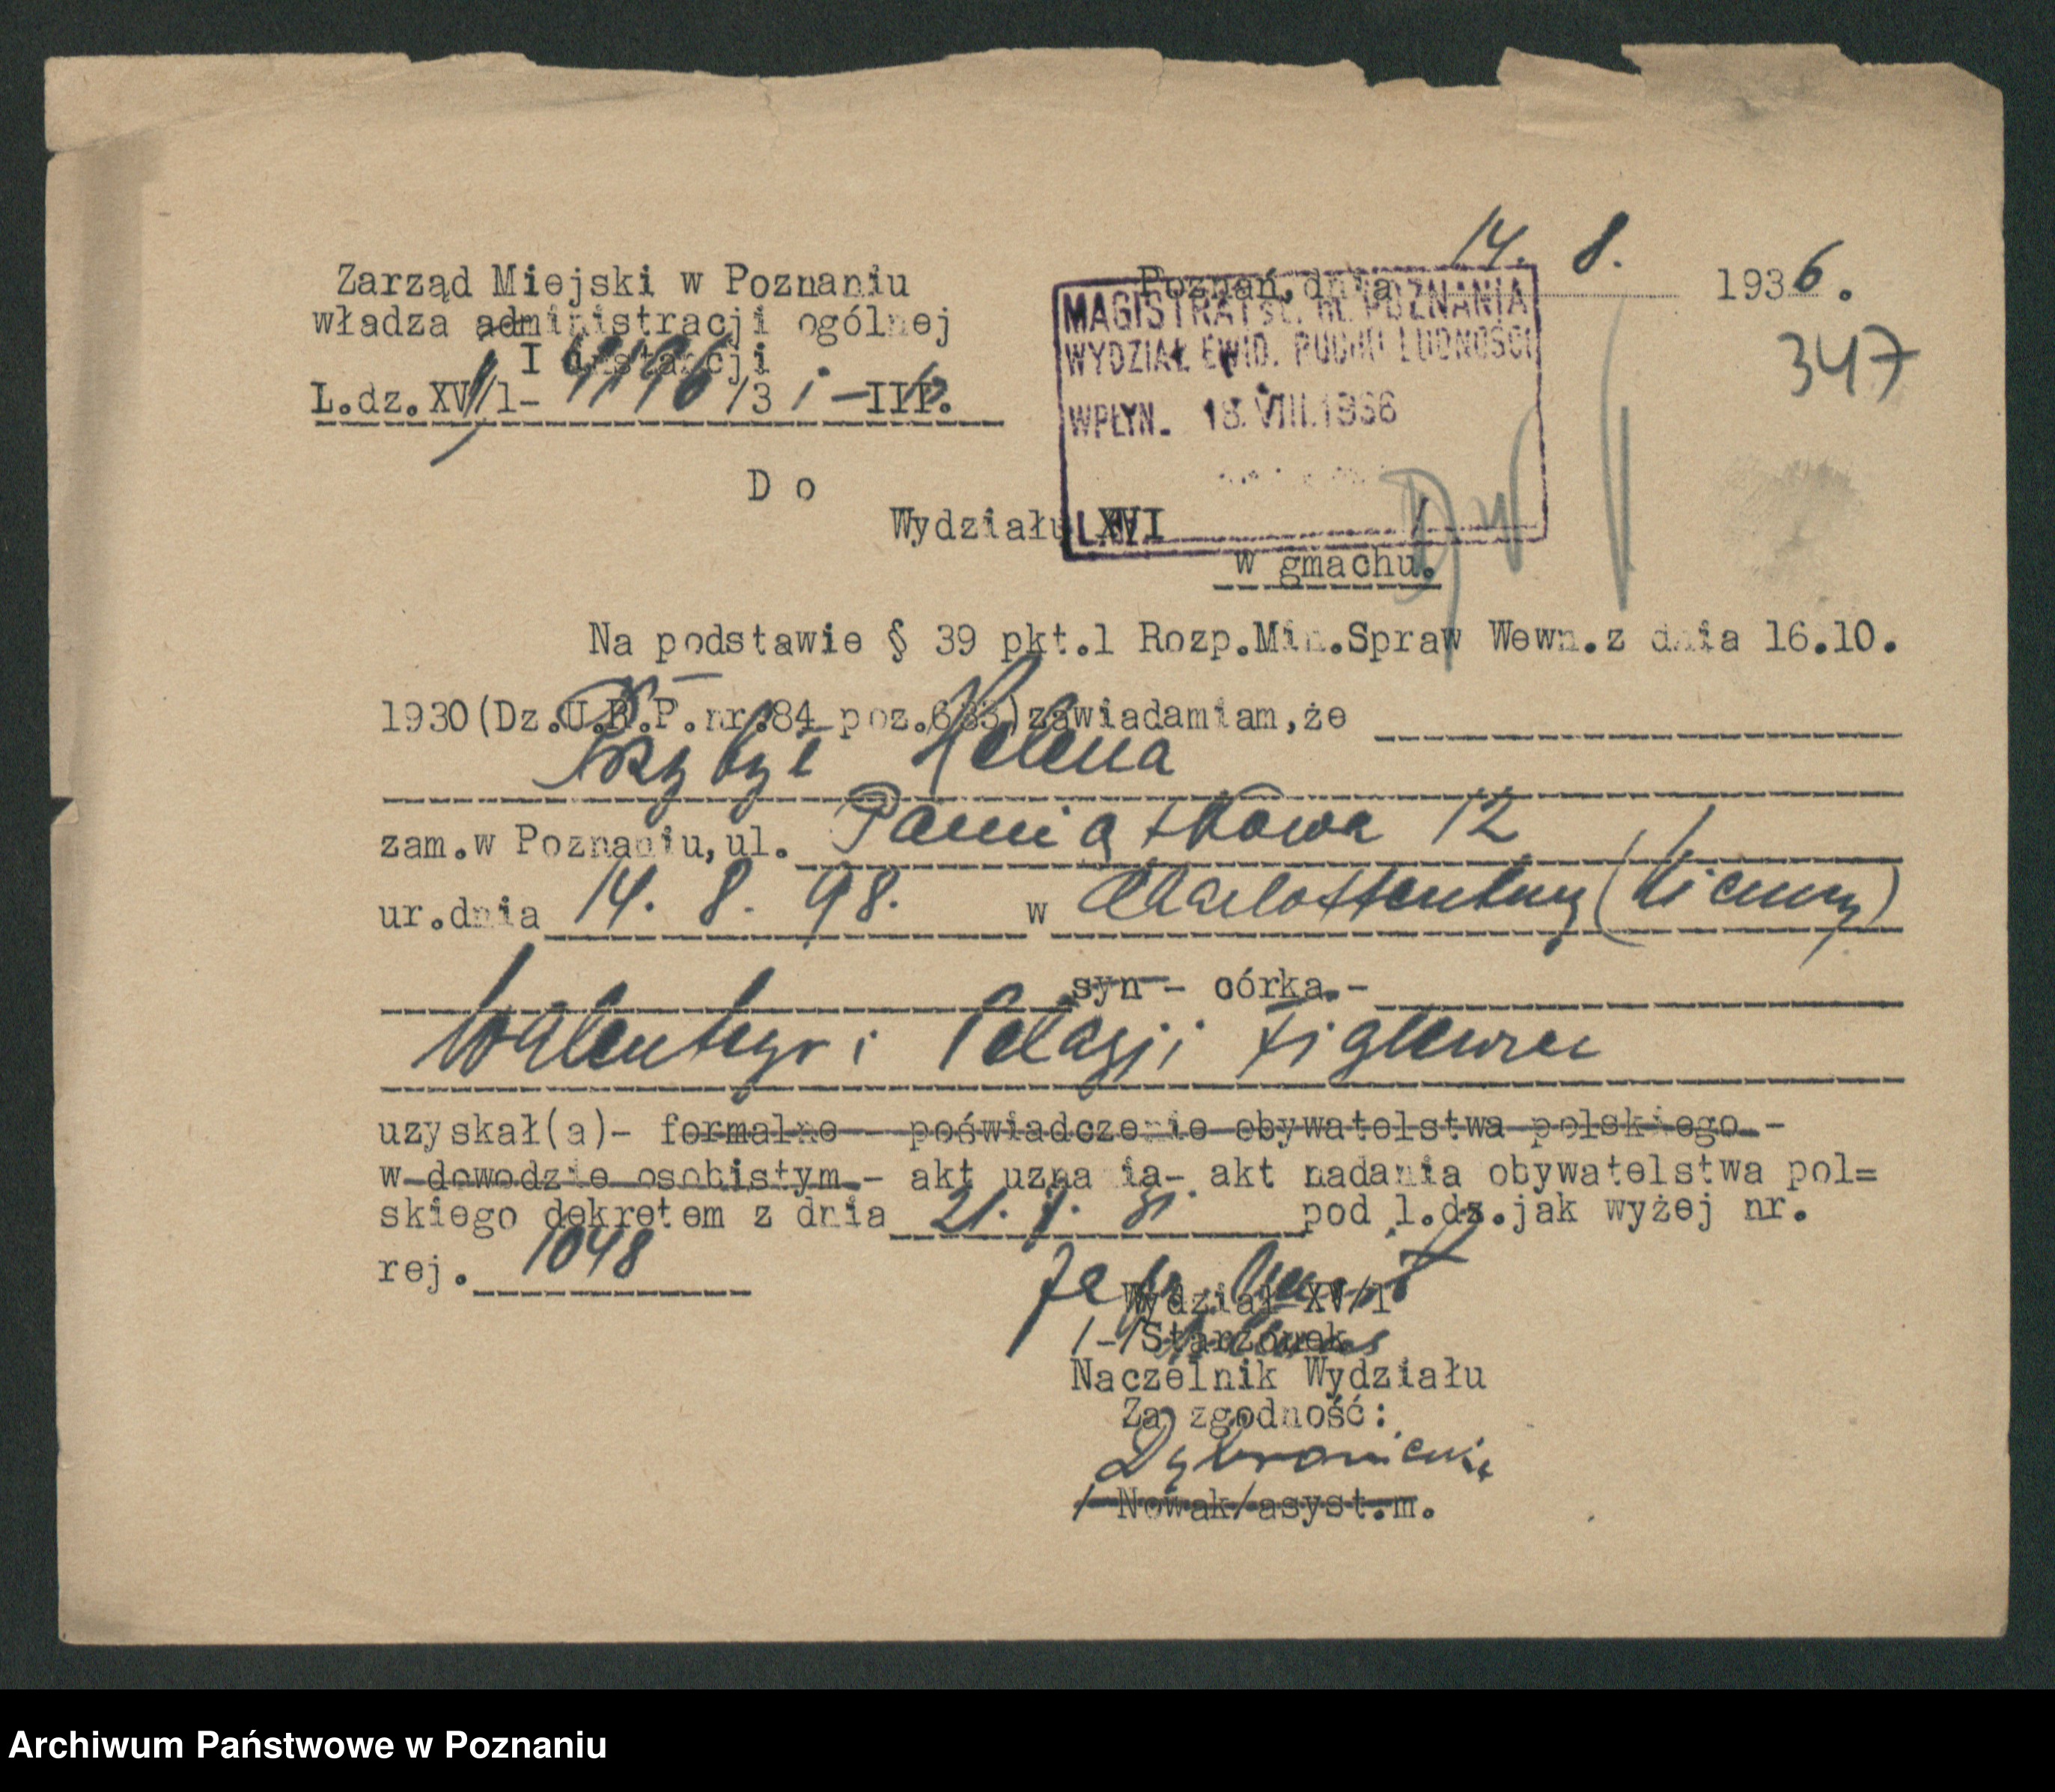 14. 8.
Zarząd Miejski w Poznaniu
Poznań, dnia 1936.
władza administracji ogólnej
I instancji
MAGISTRAT st. m. POZNANIA
WYDZIAŁ EWID. RUCHU LUDNOŚCI
347
L.dz.XV/1- /3 -III.
WPŁYN. 18. VIII. 1936
D o
Wydziału XVI
L.
w gmachu.
Na podstawie § 39 pkt.1 Rozp.Min.Spraw Wewn.z dnia 16.10.
1930(Dz.U.R.P.nr.84 poz.653)zawiadamiam,że
Przybył Helena
zam.w Poznaniu,ul. Pamiątkowa 12
ur.dnia 14. 8. 98. w Charlottenburg (Niemcy)
syn - córka.-
Walentego i Pelagji
uzyskał(a)- formalne - poświadczenie obywatelstwa polskiego.-
w dowodzie osobistym.- akt uznania- akt nadania obywatelstwa pol=
skiego dekretem z dnia 21. 31. pod l.dz.jak wyżej nr.
rej. 1048
Wydział XV/1
/-/Starzonek
Naczelnik Wydziału
Za zgodność:
/ Nowak/asyst.m.
Archiwum Państwowe w Poznaniu